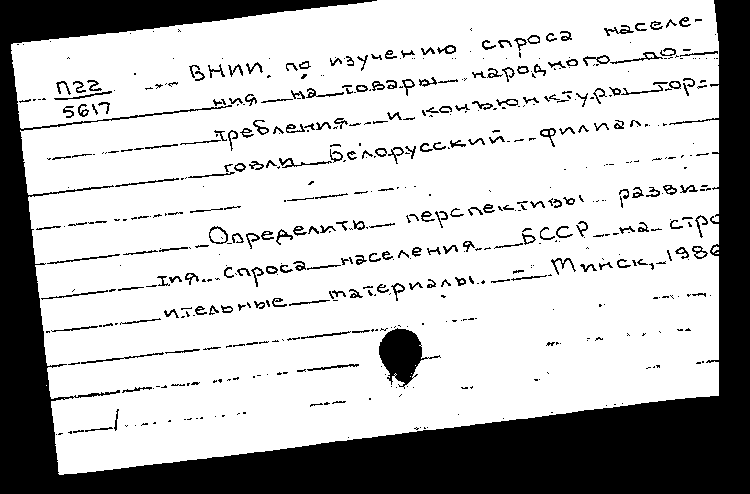 П22 ВНИИ по изучению спроса населе-
5617 ния на товары народного по-
требления и конъюнктуры тор-
говли. Белорусский филиал.
Определить перспективы разви-
тия спроса населения БССР на стро
ительные материалы. - Минск, 1986